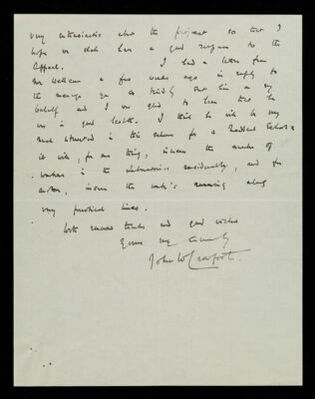 very enthusiastic about the project so that I
hope we shall have a good response to the
Appeal. I had a letter from
Mr Wellcome a few weeks ago in reply to
the message you so kindly sent him on my
behalf and I was glad to hear that he
was in good health. I think he will be very
much interested in this scheme for a
it will, for one thing, increase the number of
workers in the laboratories considerably, and for
another, insure the work's running along
very practical lines.
With renewed thanks and good wishes
Yours very sincerely
John W Crowfoot.